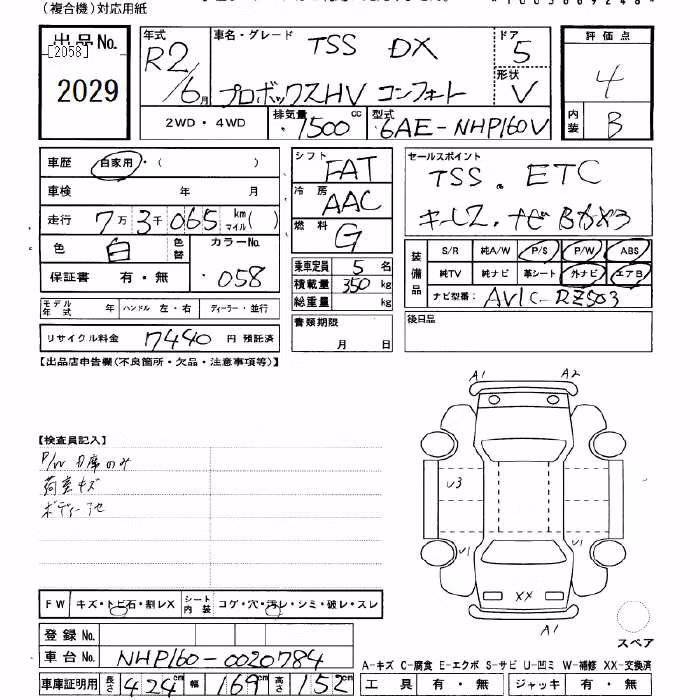 (複合機)対応用紙
出品No.
[2058]
2029
年式
R2/6月
車名・グレード
TSS DX
プロボックスHV コンフォート
ドア
5
形状
V
評価点
4
内装
B
2WD・4WD
排気量 1500 cc
型式 6AE-NHP160V
車歴 自家用・( )
車検 年 月
走行 7万3千065 km マイル( )
色 白 色替 カラーNo. 058
保証書 有・無
シフト FAT
冷房 AAC
燃料 G
乗車定員 5 名
積載量 350 kg
総重量 kg
書類期限
月 日
セールスポイント
TSS. ETC
キーレス.ナビ
装備品
S/R 純A/W P/S P/W ABS
純TV 純ナビ 革シート 外ナビ エアB
ナビ型番: AVIC-RZ503
後日品
モデル年式 年 ハンドル 左・右 ディーラー・並行
リサイクル料金 7440 円 預託済
【出品店申告欄(不良箇所・欠品・注意事項等)】
【検査員記入】
P/W D席のみ
荷室キズ
ボディー
A1 A2
U3
U1 U1
XX
A1
スペア
FW キズ・トビ石・割レX シート内装 コゲ・穴・汚レ・シミ・破レ・スレ
登録No.
車台No. NHP160-0020784
車庫証明用 長さ 424cm 幅 169cm 高さ 152cm
A-キズ C-腐食 E-エクボ S-サビ U-凹ミ W-補修 XX-交換済
工具 有・無 ジャッキ 有・無